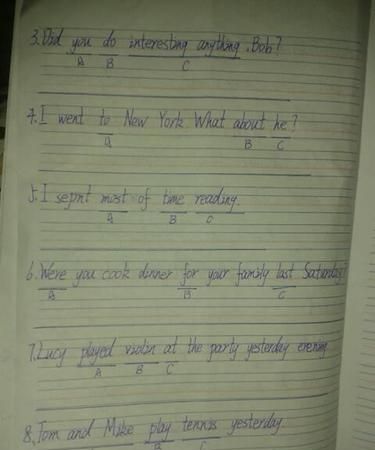 3. Did you do interesting anything, Bob?
A B C
4. I went to New York. What about he?
A B C
5. I sepnt most of time reading.
A B C
6. Were you cook dinner for your family last Saturday?
A B C
7. Lucy played violin at the party yesterday evening.
A B C
8. Tom and Mike play tennis yesterday.
B C